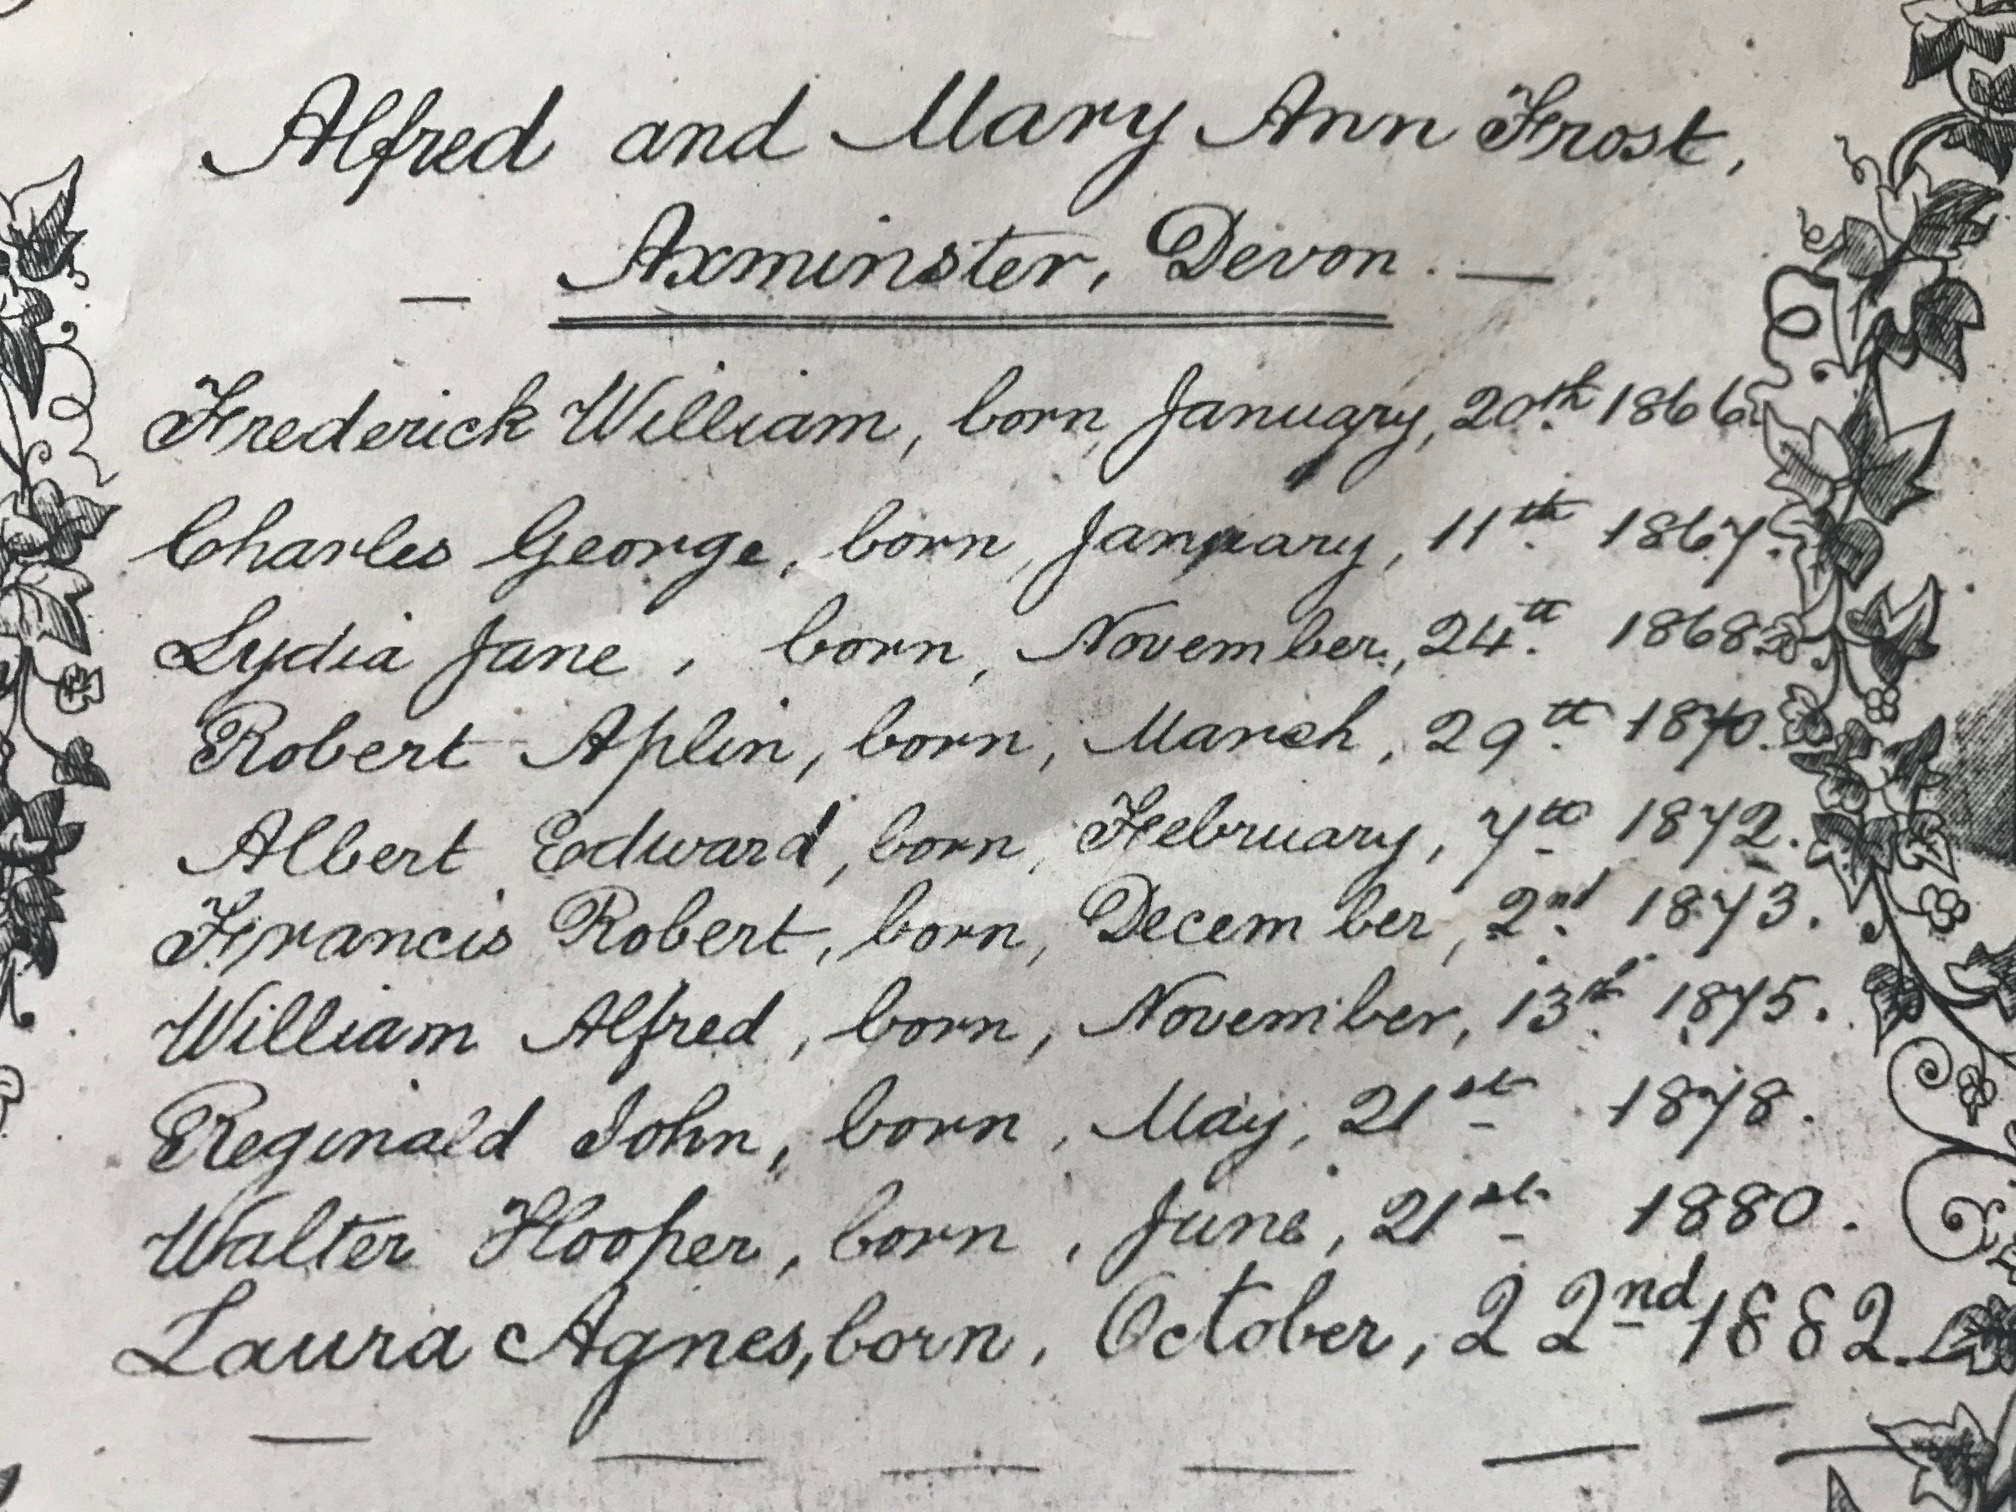 Alfred and Mary Ann Frost,
— Axminster, Devon. —
Frederick William, born, January, 20th. 1866.
Charles George, born, January, 11th. 1867.
Lydia Jane, born, November, 24th. 1868.
Robert Aplin, born, March, 29th. 1870.
Albert Edward, born, February, 7th 1872.
Francis Robert, born, December, 2nd. 1873.
William Alfred, born, November, 13th. 1875.
Reginald John, born, May, 21st 1878.
Walter Hooper, born, June, 21st 1880.
Laura Agnes, born, October, 22nd 1882.